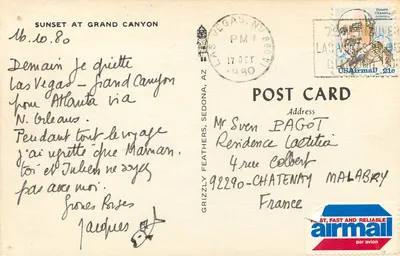 SUNSET AT GRAND CANYON
16.10.80
Demain je quitte
Las Vegas - Grand Canyon
pour Atlanta via
N. Orleans.
Pendant tout le voyage
j'ai regretté que Maman,
toi et Julien ne soyez
pas avec moi.
Grosses Bises
Jacques
GRIZZLY FEATHERS, SEDONA, AZ
LAS VEGAS, NV
PM
17 OCT
1980
USAirmail 21c
POST CARD
Address
Mr Sven PAGOT
Residence Laetitia
4 rue Colbert
92290-CHATENAY MALABRY
France
ST, FAST AND RELIABLE
airmail
par avion